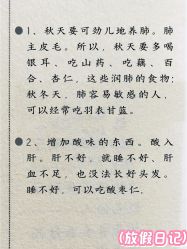 1、秋天要可劲儿地养肺。肺
主皮毛。所以，秋天要多喝
银耳、吃山药、吃藕、百
合、杏仁，这些润肺的食物；
秋冬天，肺容易敏感的人，
可以经常吃羽衣甘蓝。
2、增加酸味的东西。酸入
肝。肝不好，就睡不好、肝
血不足，也没法长好头发。
睡不好，可以吃酸枣仁。
(放假日记)